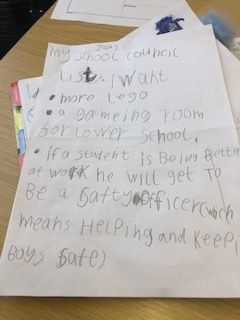 Josh's
my school council
List. i want
• more Lego
• a gameing room
for lower school.
• If a student is Being Better
at work he will get To
Be a Safty officer (which
means HeLping and Keepi
Boys Safe)